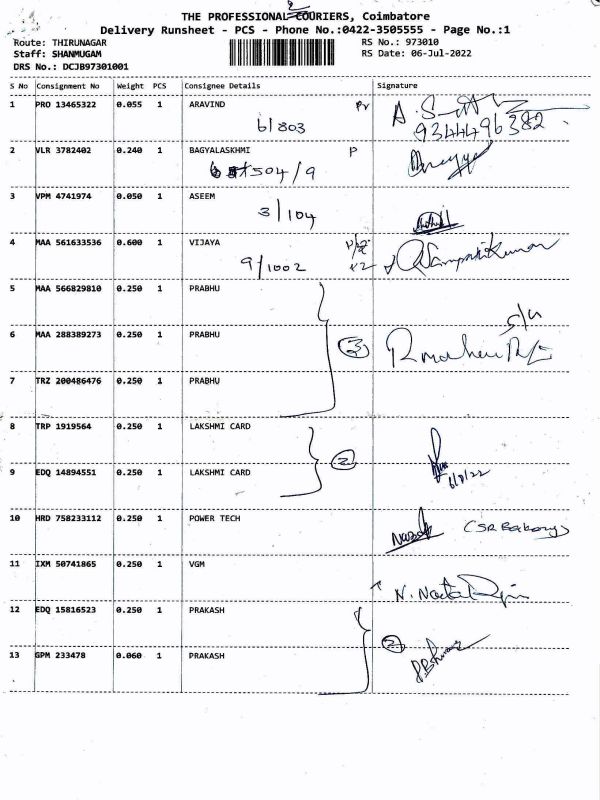 2
THE PROFESSIONAL COURIERS, Coimbatore
Delivery Runsheet - PCS - Phone No.:0422-3505555 - Page No.:1
Route: THIRUNAGAR RS No.: 973010
Staff: SHANMUGAM RS Date: 06-Jul-2022
DRS No.: DCJB97301001
S No Consignment No Weight PCS Consignee Details Signature
1 PRO 13465322 0.055 1 ARAVIND
6/803 9344496382
2 VLR 3782402 0.240 1 BAGYALASKHMI P
504/9
3 VPM 4741974 0.050 1 ASEEM
3/104
4 MAA 561633536 0.600 1 VIJAYA
9/1002
5 MAA 566829810 0.250 1 PRABHU
6 MAA 288389273 0.250 1 PRABHU
3
7 TRZ 200486476 0.250 1 PRABHU
8 TRP 1919564 0.250 1 LAKSHMI CARD
2
9 EDQ 14894551 0.250 1 LAKSHMI CARD
6/7/22
10 HRD 758233112 0.250 1 POWER TECH
11 IXM 50741865 0.250 1 VGM
12 EDQ 15816523 0.250 1 PRAKASH
2
13 GPM 233478 0.060 1 PRAKASH